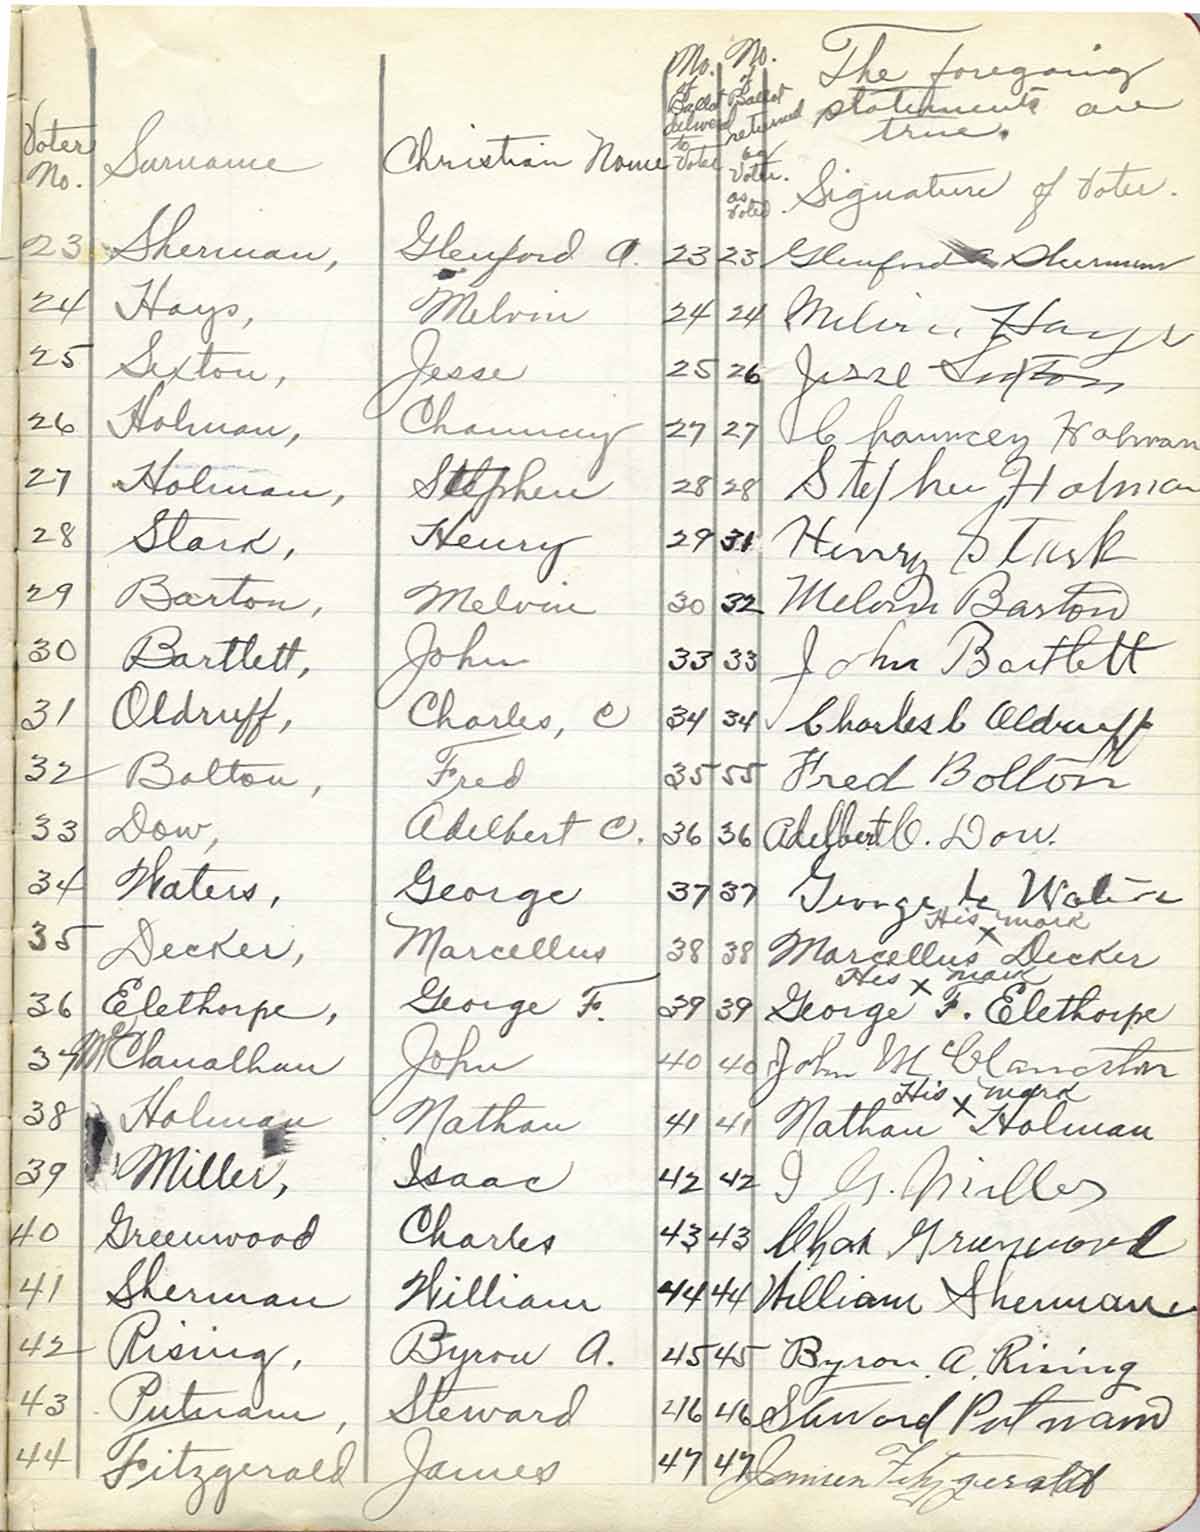 Voter No. Surname Christian Name No. of Ballot delivered to Voter No. of Ballot returned by Voter. as Voted. The foregoing statements are true. Signature of Voter.
23 Sherman, Glenford A. 23 23 Glenford A Sherman
24 Hays, Melvin 24 24 Melvin Hays
25 Sexton, Jesse 25 26 Jesse Sexton
26 Holman, Chauncey 27 27 Chauncey Holman
27 Holman, Stephen 28 28 Stephen Holman
28 Stark, Henry 29 31 Henry Stark
29 Barton, Melvin 30 32 Melvin Barton
30 Bartlett, John 33 33 John Bartlett
31 Oldruff, Charles, C 34 34 Charles C Oldruff
32 Bolton, Fred 35 55 Fred Bolton
33 Dow, Adelbert C. 36 36 Adelbert C. Dow.
34 Waters, George 37 37 George Waters
35 Decker, Marcellus 38 38 Marcellus His x mark Decker
36 Elethorpe, George F. 39 39 George His x mark F. Elethorpe
37 McClanathan John 40 40 John
38 Holman Nathan 41 41 Nathan His x mark Holman
39 Miller, Isaac 42 42 I G. Miller
40 Greenwood Charles 43 43 Chas Greenwood
41 Sherman William 44 44 William Sherman
42 Rising, Byron A. 45 45 Byron. A. Rising
43 Putnam, Steward 46 46 Steward Putnam
44 Fitzgerald James 47 47 James Fitzgerald